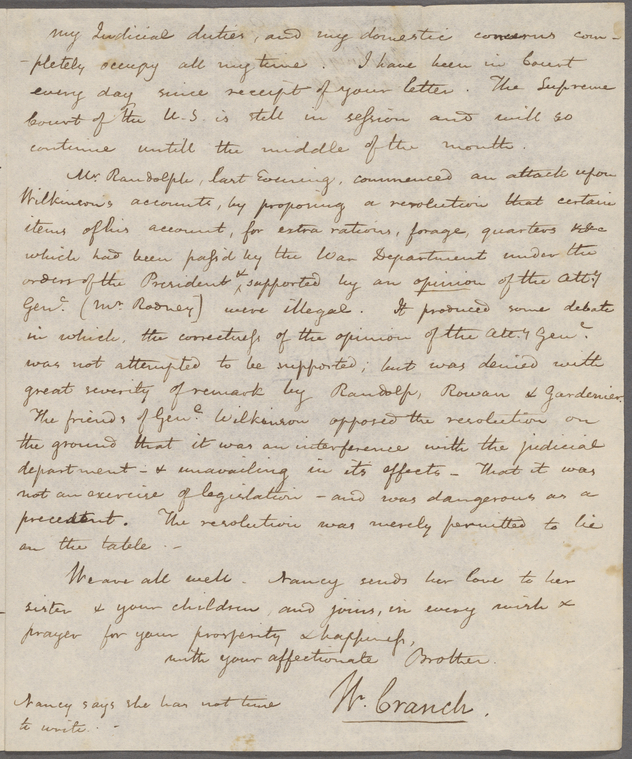 my Judicial duties, and my domestic concerns com-
-pletely occupy all my time. I have been in Court
every day since receipt of your letter. The Supreme
Court of the U.S. is still in session and will so
continue untill the middle of the month.
Mr. Randolph, last Evening, commenced an attack upon
Wilkinson's accounts, by proposing a resolution that certain
items of his account, for extra rations, forage, quarters &c
which had been passed by the War Department under the
orders of the President & supported by an opinion of the Atty
Genl. (Mr. Rodney) were illegal. It produced some debate
in which, the correctness of the opinion of the Atty Genl.
was not attempted to be supported; but was denied with
great severity of remark by Randolp, Rowan & Gardenier.
The friends of Genl. Wilkinson opposed the resolution on
the ground that it was an interference with the judicial
department - & unavailing in its effects - That it was
not an exercise of legislation - and was dangerous as a
precedent. The resolution was merely permitted to lie
on the table. -
We are all well. Nancy sends her love to her
sister & your children, and joins, in every wish &
prayer for your prosperity & happiness,
with your affectionate Brother.
W. Cranch.
Nancy says she has not time
to write. -